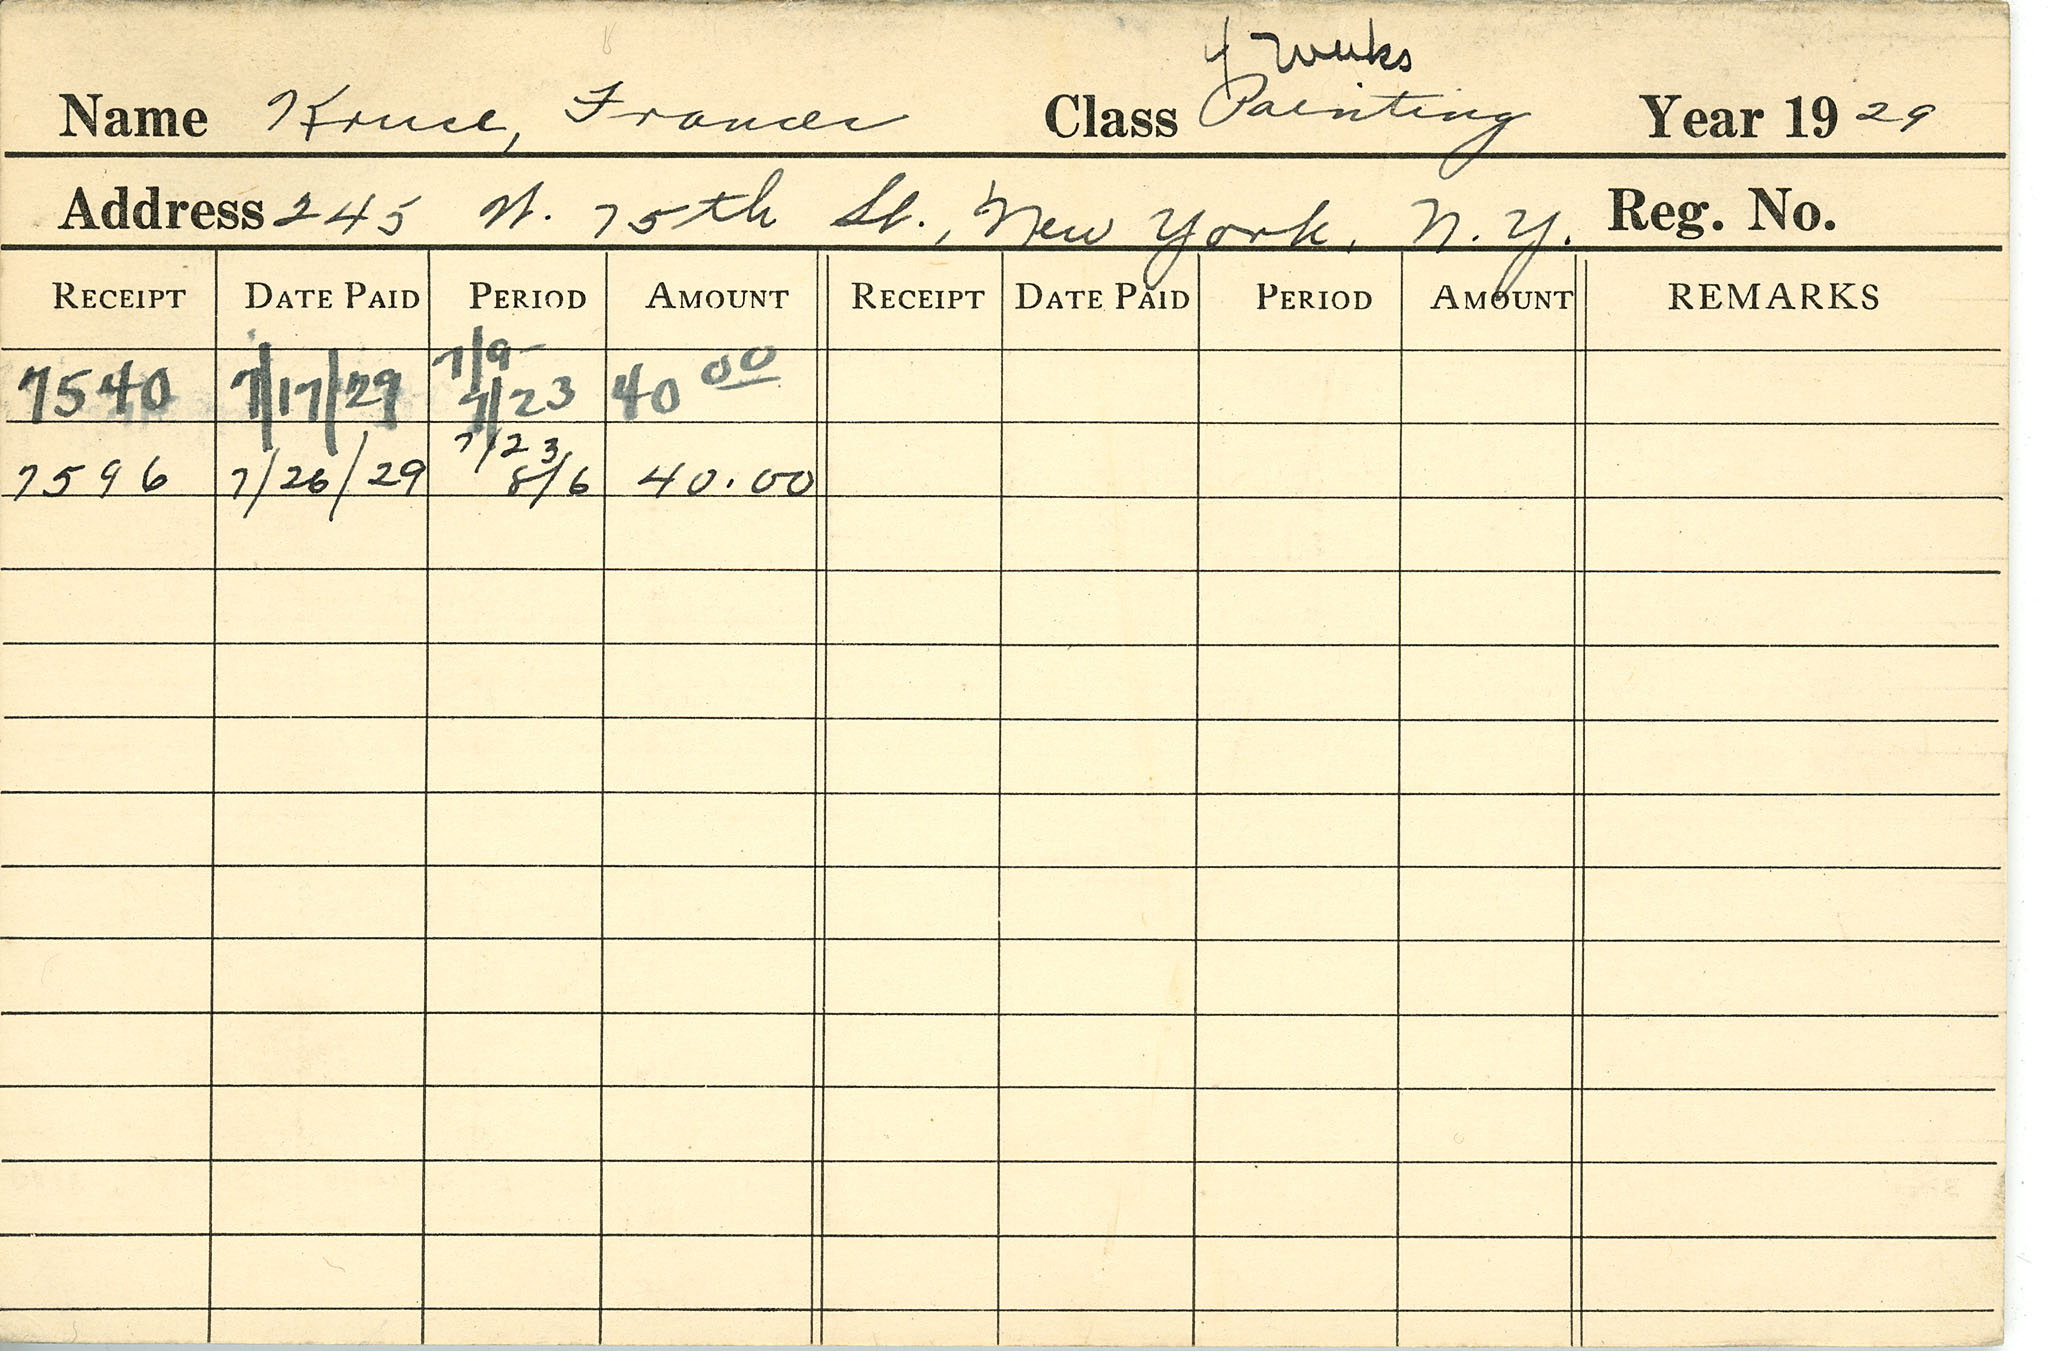 4 Weeks
Name Kruse, Frances Class Painting Year 1929
Address 245 W. 75th St., New York, N.Y. Reg. No.
RECEIPT DATE PAID PERIOD AMOUNT RECEIPT DATE PAID PERIOD AMOUNT REMARKS
7540 7/17/29 7/9- 7/23 40 00
7596 7/26/29 7/23 8/6 40.00